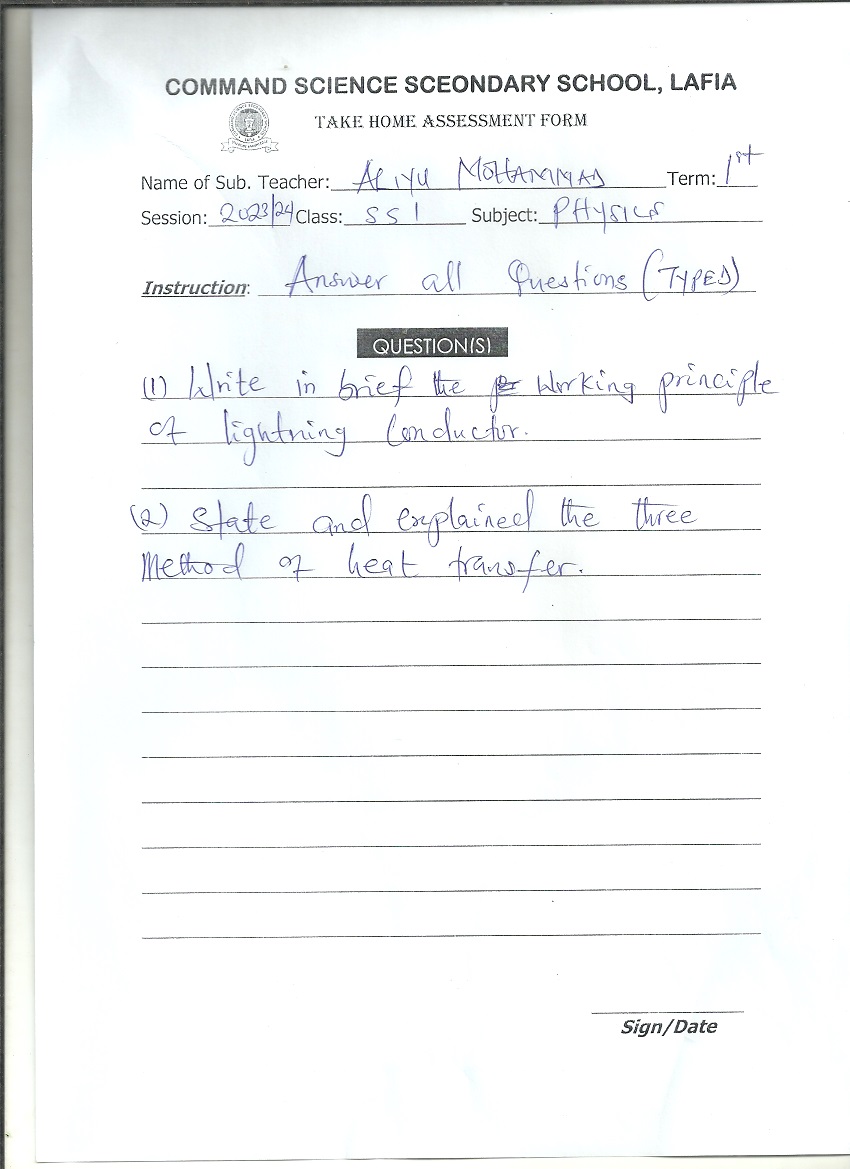 COMMAND SCIENCE SCEONDARY SCHOOL, LAFIA
TAKE HOME ASSESSMENT FORM
Name of Sub. Teacher: ALIYU MOHAMMAD Term: 1st
Session: 2023/24 Class: SS 1 Subject: PHYSICS
Instruction: Answer all Questions (TYPED)
QUESTION(S)
(1) Write in brief the working principle
of lightning conductor.
(2) State and explained the three
Method of heat transfer.
Sign/Date